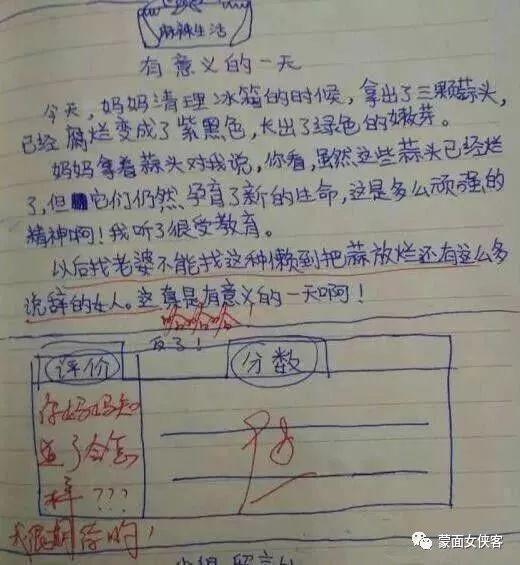 麻辣生活
有意义的一天
今天,妈妈清理冰箱的时候,拿出了三颗蒜头,
已经腐烂变成了紫黑色,长出了绿色的嫩芽。
妈妈拿着蒜头对我说,你看,虽然这些蒜头已经烂
了,但它们仍然孕育了新的生命,这是多么顽强的
精神啊!我听了很受教育。
以后找老婆不能找这种懒到把蒜放烂还有这么多
说辞的女人。这真是有意义的一天啊!
哈哈哈
评价
分数
你妈妈知
道了会怎
样???
我很期待哟!
优
蒙面女侠客